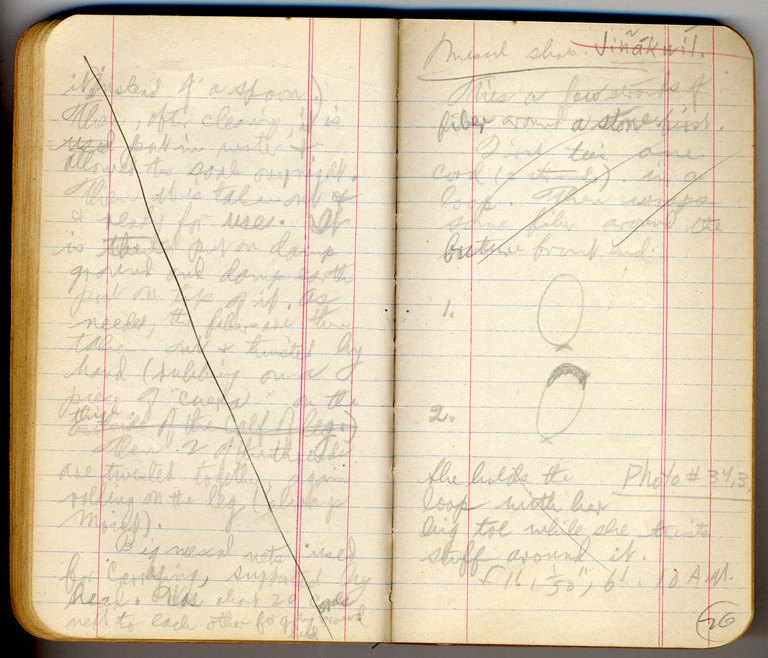 it instead of a spoon)
Then, after cleaning, it is
used put in water &
allowed to soak overnight.
Then it is taken out &
& ready for use. It
is then put on damp
ground and damp earth
put on top of it. As
needed, the fibers are then
taken out & twisted by
hand (rubbing on a
piece of "cuera" on the
thigh
outside of the calf of leg)
Then 2 of the threads
are twisted together, again
rolling on the leg (always
moist).
Big mescal nets used
for carrying, supported by
head. Has about 20 cords
next to each other for going around
head
Mescal shoe. Jiñákwil.
Ties a few strands of
fiber around a stone first.
First ties one
cord (2 strands) in a
loop. Then wraps
some fiber around the
outside front end.
1.
2.
She holds the
Photo # 34,3
loop with her
big toe while she twists
stuff around it.
f 16, 1/50", 6'. 10 A.M.
26